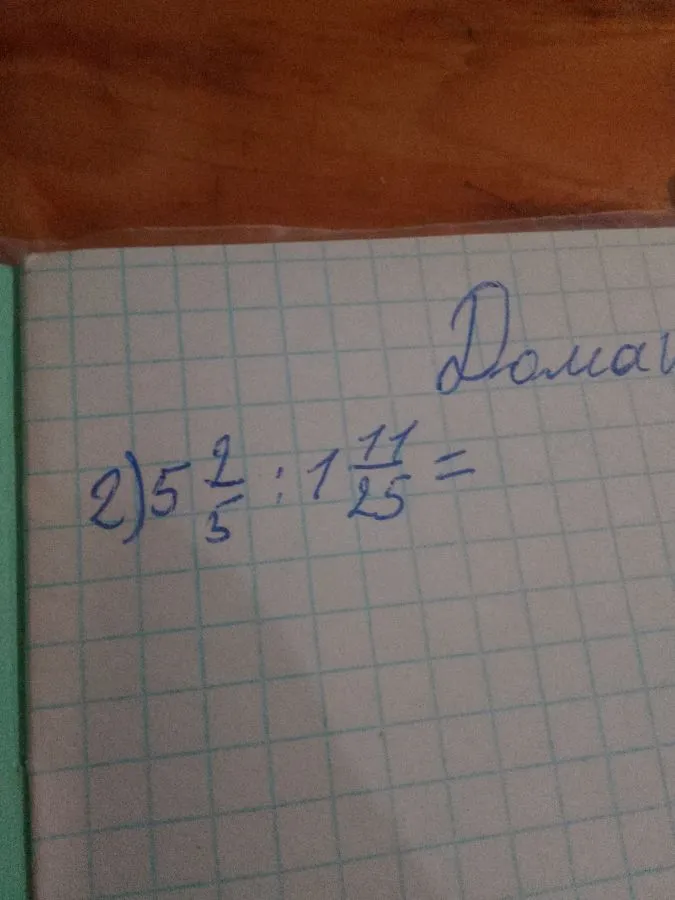 Дома
2) 5 2/5 : 1 11/25 =